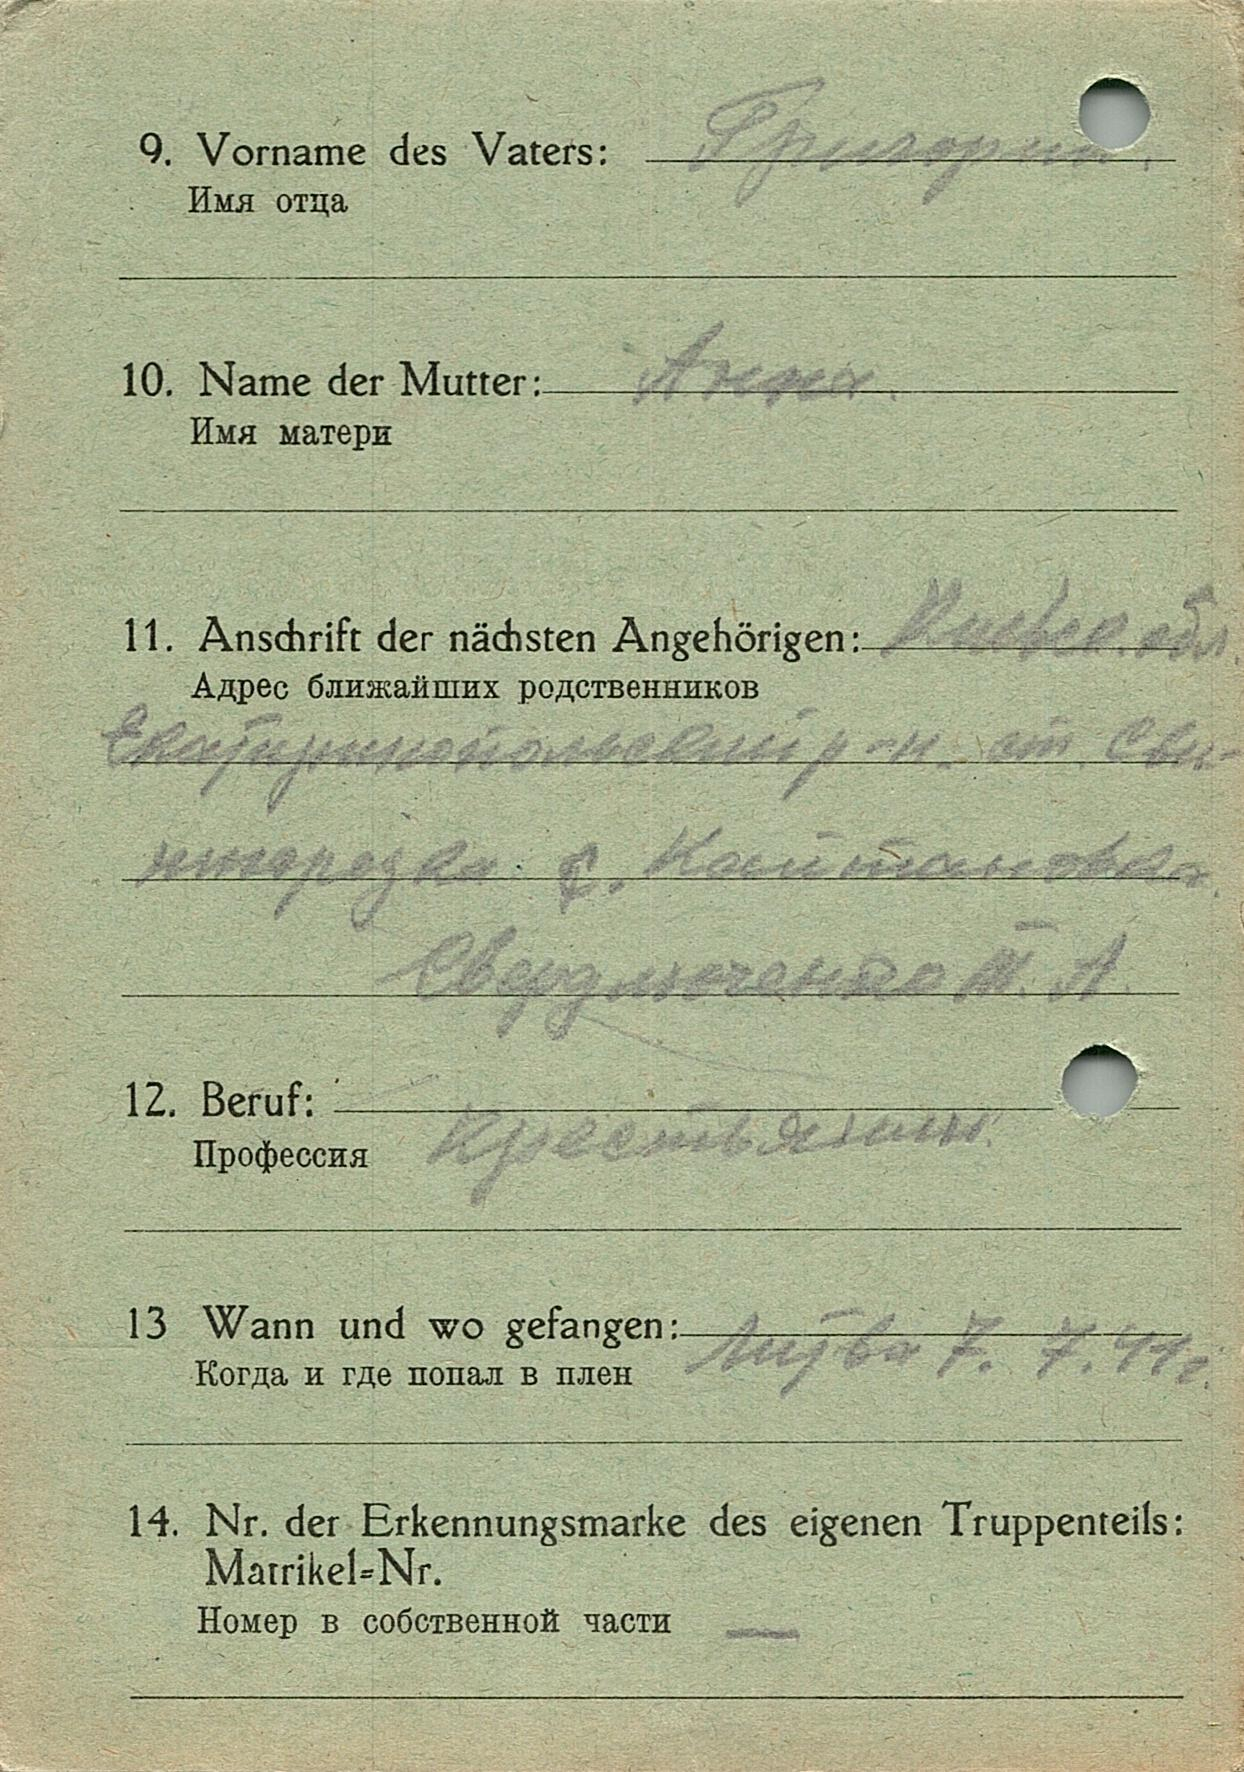 9. Vorname des Vaters: Григорий.
Имя отца
10. Name der Mutter: Анна.
Имя матери
11. Anschrift der nächsten Angehörigen: Киевск. обл.
Адрес ближайших родственников
р-н. ст. Зви-
нгородка с. Кайтановка.
Т. А.
12. Beruf:
Профессия Крестьянин.
13 Wann und wo gefangen:
Когда и где попал в плен Литва 7. 7. 41 г.
14. Nr. der Erkennungsmarke des eigenen Truppenteils:
Matrikel=Nr.
Номер в собственной части —